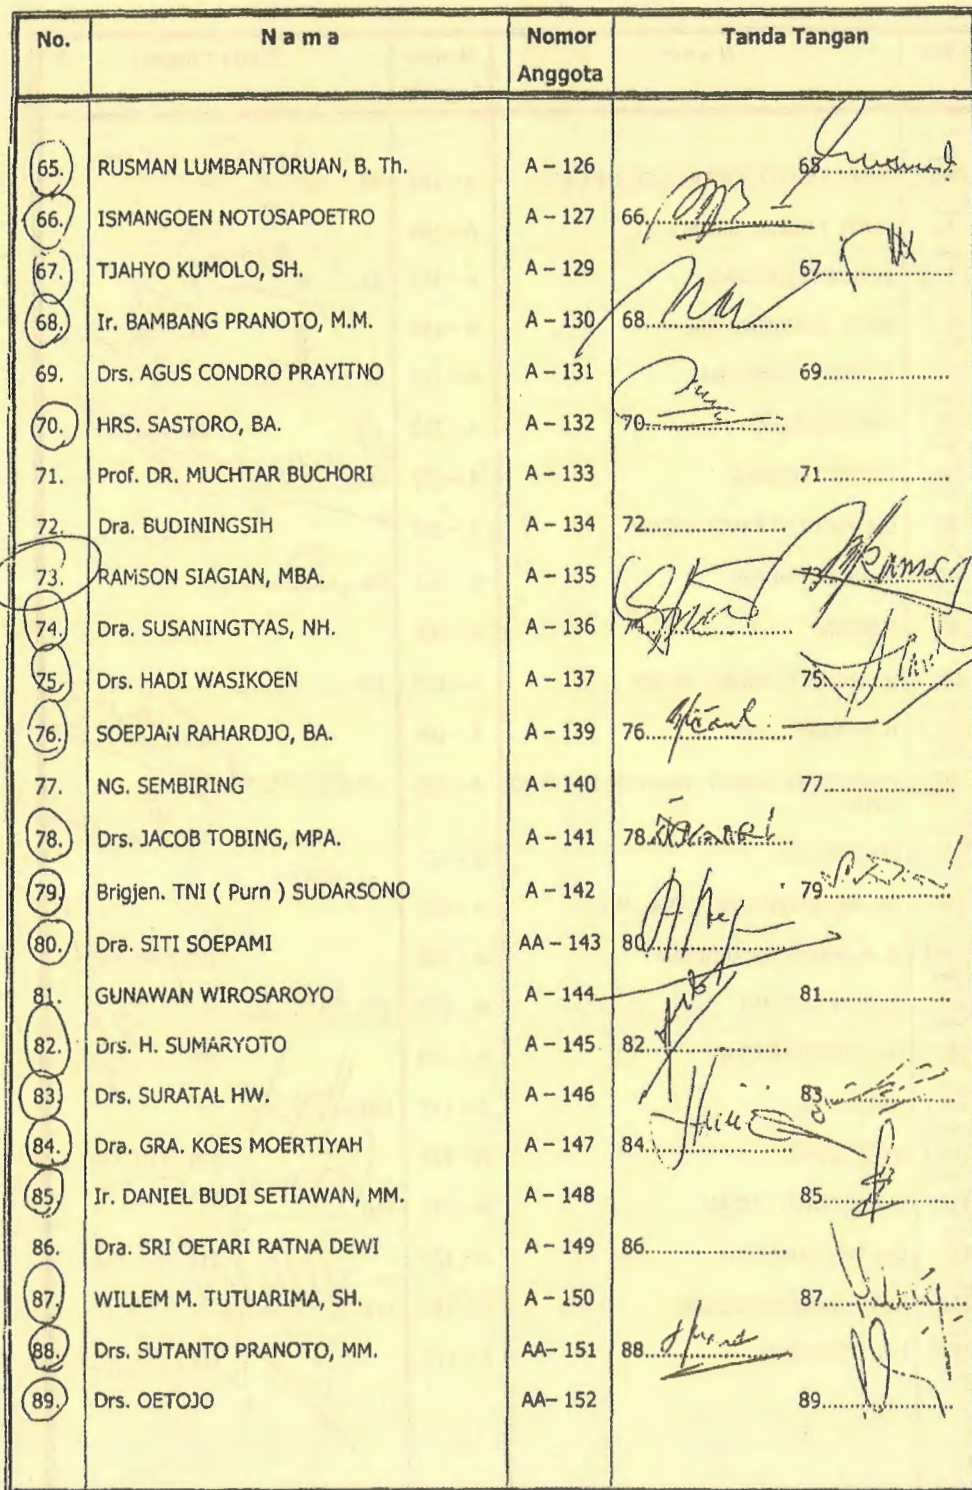 No. Nama Nomor Anggota Tanda Tangan
65. RUSMAN LUMBANTORUAN, B. Th. A – 126 65..................
66. ISMANGOEN NOTOSAPOETRO A – 127 66..................
67. TJAHYO KUMOLO, SH. A – 129 67..................
68. Ir. BAMBANG PRANOTO, M.M. A – 130 68..................
69. Drs. AGUS CONDRO PRAYITNO A – 131 69..................
70. HRS. SASTORO, BA. A – 132 70..................
71. Prof. DR. MUCHTAR BUCHORI A – 133 71..................
72. Dra. BUDININGSIH A – 134 72..................
73. RAMSON SIAGIAN, MBA. A – 135 73..................
74. Dra. SUSANINGTYAS, NH. A – 136 74..................
75. Drs. HADI WASIKOEN A – 137 75..................
76. SOEPJAN RAHARDJO, BA. A – 139 76..................
77. NG. SEMBIRING A – 140 77..................
78. Drs. JACOB TOBING, MPA. A – 141 78..................
79. Brigjen. TNI ( Purn ) SUDARSONO A – 142 79..................
80. Dra. SITI SOEPAMI AA – 143 80..................
81. GUNAWAN WIROSAROYO A – 144 81..................
82. Drs. H. SUMARYOTO A – 145 82..................
83. Drs. SURATAL HW. A – 146 83..................
84. Dra. GRA. KOES MOERTIYAH A – 147 84..................
85. Ir. DANIEL BUDI SETIAWAN, MM. A – 148 85..................
86. Dra. SRI OETARI RATNA DEWI A – 149 86..................
87. WILLEM M. TUTUARIMA, SH. A – 150 87..................
88. Drs. SUTANTO PRANOTO, MM. AA– 151 88..................
89. Drs. OETOJO AA– 152 89..................